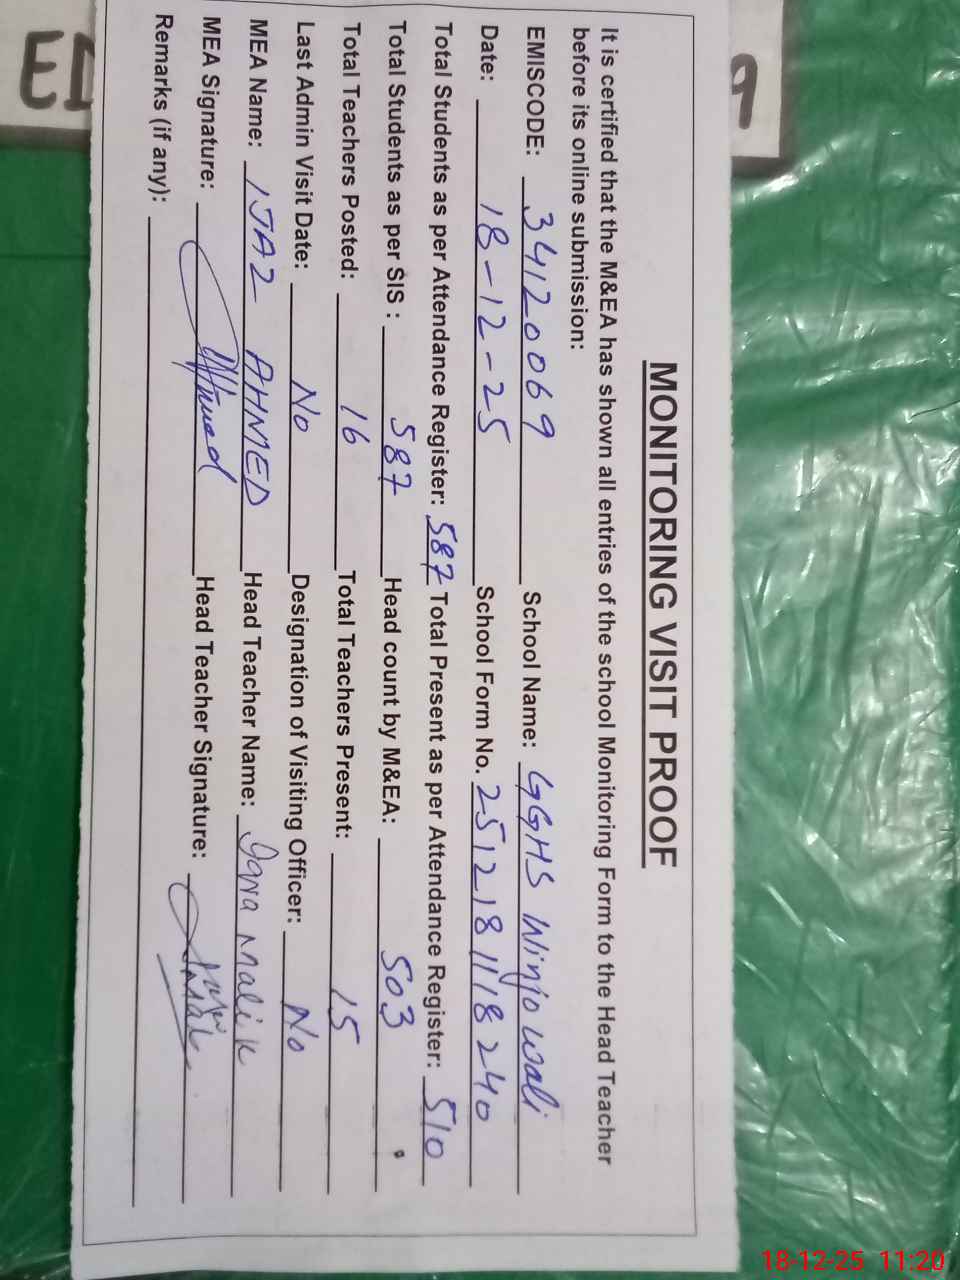 MONITORING VISIT PROOF
It is certified that the M&EA has shown all entries of the school Monitoring Form to the Head Teacher
before its online submission:
EMISCODE: 34120069 School Name: GGHS Winjowali
Date: 18-12-25 School Form No. 251218 1118240
Total Students as per Attendance Register: 587 Total Present as per Attendance Register: 510
Total Students as per SIS : 587 Head count by M&EA: 503
Total Teachers Posted: 16 Total Teachers Present: 15
Last Admin Visit Date: No Designation of Visiting Officer: No
MEA Name: IJAZ AHMED Head Teacher Name: Iqra Malik
MEA Signature: Head Teacher Signature:
Remarks (if any):
18-12-25 11:20